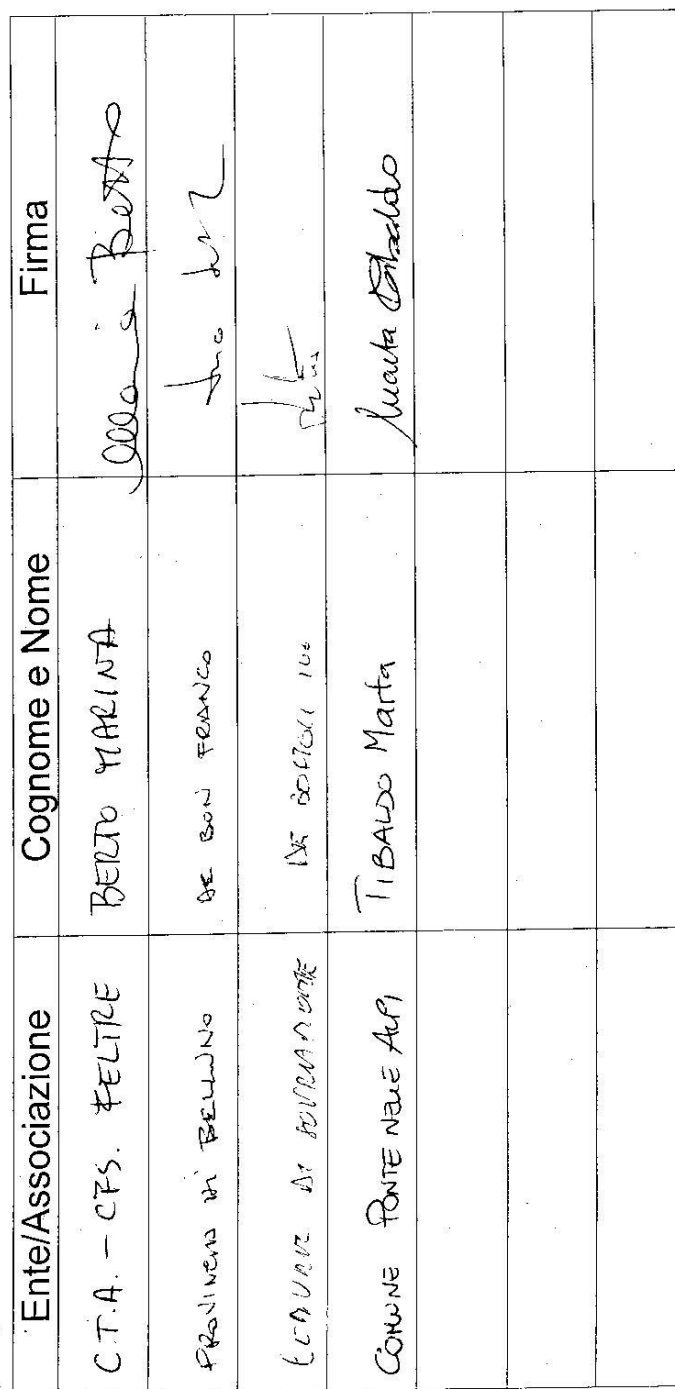 Ente/Associazione Cognome e Nome Firma
C.T.A. - CFS. FELTRE BERTO MARINA Marina Berto
PROVINCIA DI BELLUNO DE BON FRANCO
DI DE BORTOLI
COMUNE PONTE NELLE ALPI TIBALDO Marta Marta Tibaldo